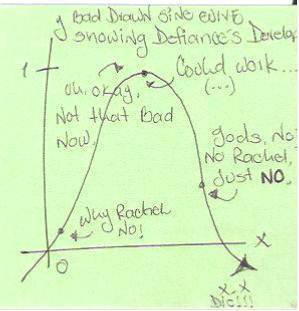 y Bad Drawn sine curve
showing Defiance's Develop
1
oh, okay,
Not that Bad
Now.
Could work...
(...)
gods, No
No Rachel,
Just NO.
Why Rachel
No!
x
0
x_x
Die!!!